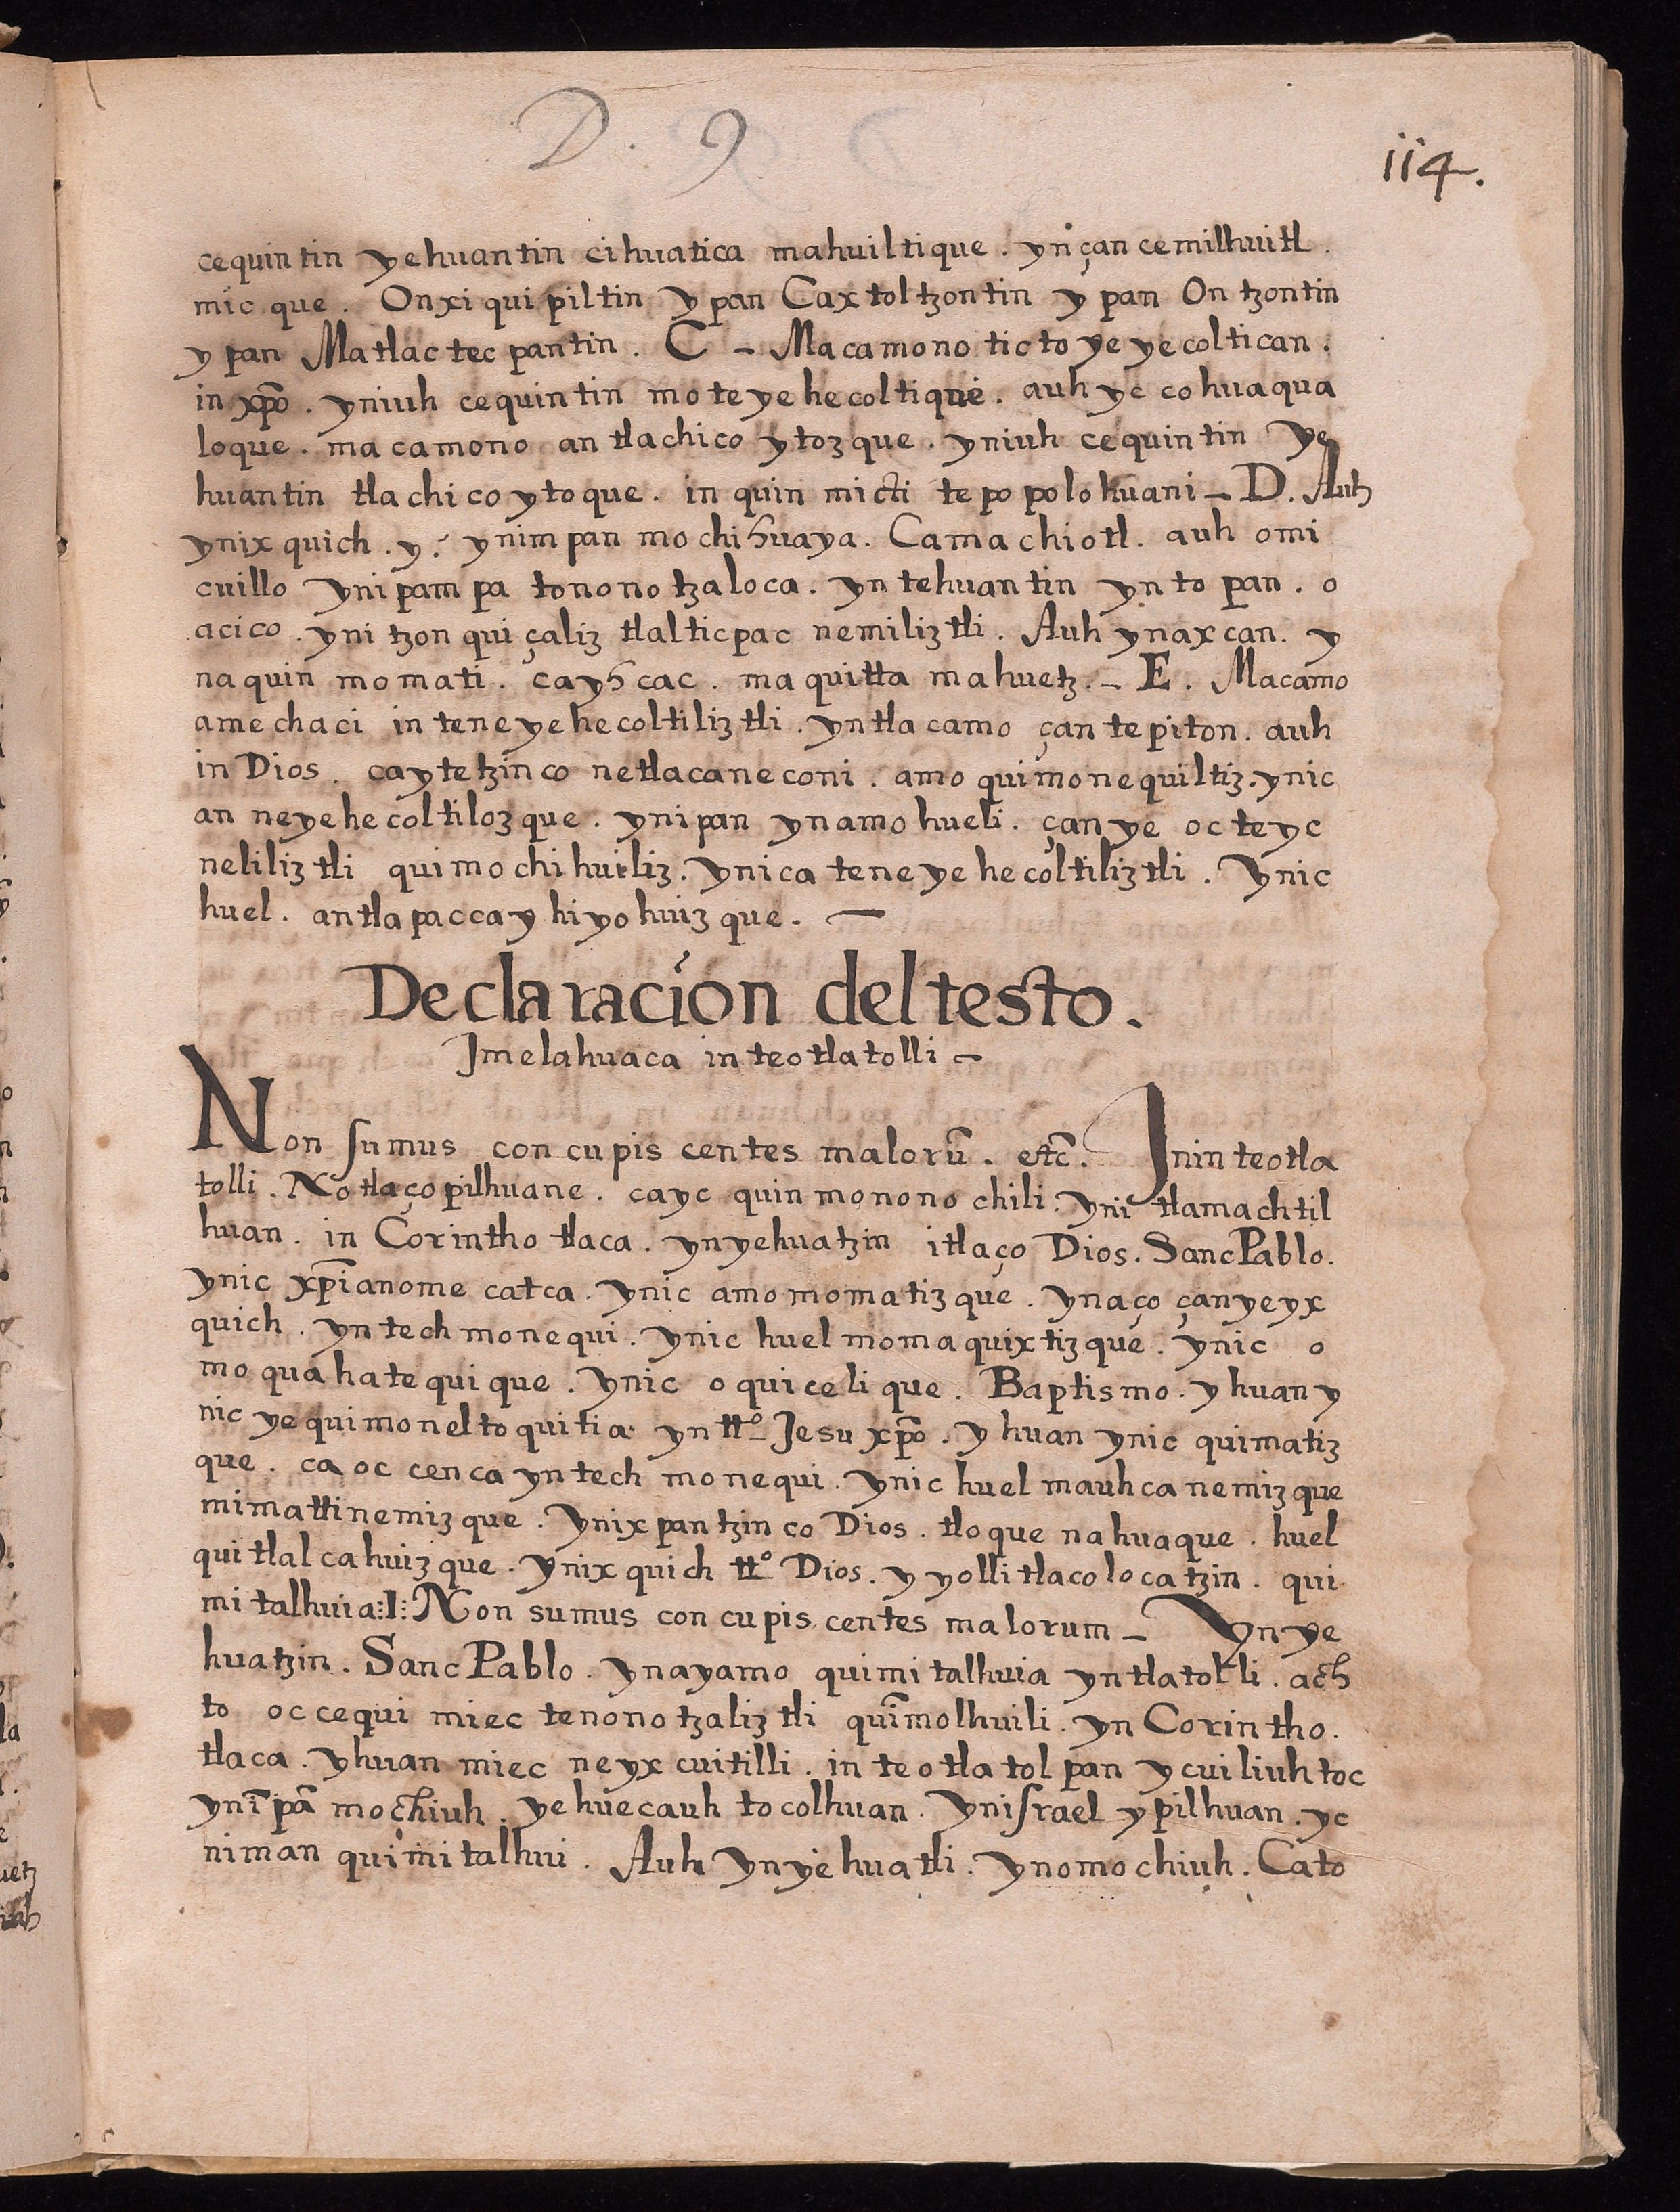 D. 9
114.
cequintin yehuantin cihuatica mahuiltique. yn çan cemilhuitl.
mic que. Onxiqui piltin y pan Caxtoltzontin y pan On tzontin
y pan Matlac tec pantin. C - Macamono tic to ye yecoltican.
in xp̃o. yniuh cequintin mo te ye he coltique. auh yc cohuaqua
loque. ma camono an tlachico ytozque. yniuh cequintin ye
huantin tlachico ytoque. in quin micti te po polohuani - D. Auh
ynix quich. y. ynim pan mo chihuaya. Ca machiotl. auh omi
cuillo yni pam pa tonono tzaloca. yn tehuantin yn to pan. o
acico. yni tzon qui çaliz tlalticpac nemiliztli. Auh ynax can. y
naquin momati. ca yh cac. ma quitta mahuetz. - E. Macamo
amechaci in tene ye he coltiliztli. yntla camo çan tepiton. auh
in Dios. ca ytetzinco netlacaneconi. amo quimonequiltiz. ynic
an neyehe coltilozque. yni pan ynamo hueli. çan ye oc te yc
neliliztli quimo chihuiliz. ynica tene ye he coltiliztli. Ynic
huel. antlapacca y hiyohuiz que. -
Declaracion del testo.
Jmelahuaca in teotlatolli -
Non sumus concupis centes malorũ. etc̃. Jnin teotla
tolli. No tlaço pilhuane. ca yc quin monono chili. yni tlamachtil
huan. in Corintho tlaca. yn yehuatzin itlaço Dios. Sanc Pablo.
ynic xp̃ianome catca. ynic amo momatizque. ynaço çan ye yx
quich. yn tech monequi. ynic huel momaquixtizque. ynic o
mo quahatequique. ynic o quicelique. Baptismo. y huan y
nic ye quimoneltoquitia yn tt.º Jesu xp̃o. y huan ynic quimatiz
que. ca oc cenca yn tech monequi. ynic huel mauhca nemizque
mimattinemizque. ynixpantzinco Dios. tloque nahuaque. huel
quitlalcahuizque. ynixquich tt.º Dios. y yollitlacolocatzin. qui
mitalhuia :I: Non sumus concupis centes malorum - Ynye
huatzin. Sanc Pablo. ynayamo quimitalhuia yn tlatolli. ach
to occequi miec tenonotzaliztli quĩmolhuili. yn Corintho.
tlaca. yhuan miec neyxcuitilli. in teotlatolpan ycuiliuhtoc
ynĩ pã mochiuh. ye huecauh tocolhuan. Ynisrael ypilhuan. yc
niman quimitalhui. Auh ynyehuatli. ynomochiuh. Ca to